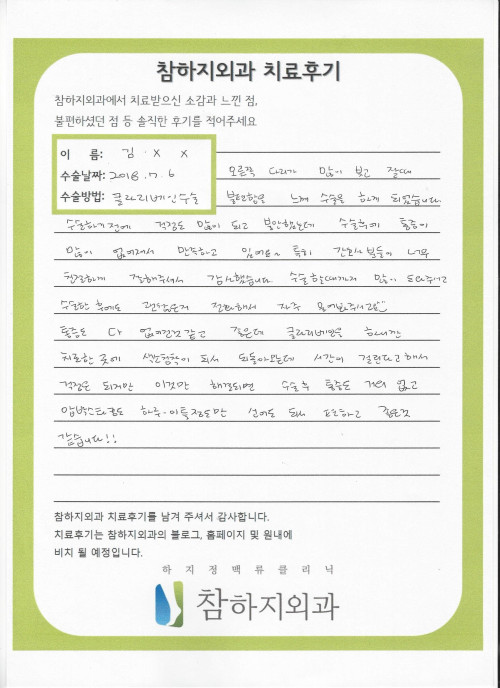 참하지외과 치료후기
참하지외과에서 치료받으신 소감과 느낀 점,
불편하셨던 점 등 솔직한 후기를 적어주세요
이 름: 김 · X X
수술날짜: 2018. 7. 6
수술방법: 클라리베인수술
오른쪽 다리가 많이 붓고 잘때
불편함을 느껴 수술을 하게 되었습니다
수술하기전에 걱정도 많이 되고 불안했는데 수술후에 통증이
많이 없어져서 만족하고 있어요~ 특히 간호사분들이 너무
친절하게 잘해주셔서 감사했습니다 수술할때까지 많이 도와주시고
수술한 후에도 괜찮은지 전화해서 자주 물어봐주시고요
통증도 다 없어진것 같고 좋은데 클라리베인을 하니깐
치료한 곳에 색소침착이 되서 되돌아오는데 시간이 걸린다고 해서
걱정은 되지만 이것만 해결되면 수술후 통증도 거의 없고
압박스타킹도 하루·이틀정도만 신어도 되서 편하고 좋은것
같습니다!!
참하지외과 치료후기를 남겨 주셔서 감사합니다.
치료후기는 참하지외과의 블로그, 홈페이지 및 원내에
비치 될 예정입니다.
하지정맥류클리닉
참하지외과